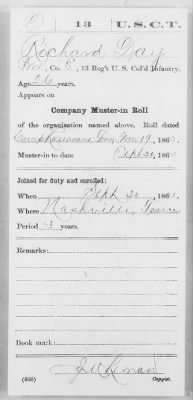 D 13 U.S.C.T.
Richard Day
Pvt., Co. E, 13 Reg't U. S. Col'd Infantry.
Age 26 years.
Appears on
Company Muster-in Roll
of the organization named above. Roll dated
Camp Rosecrans Tenn, Nov 19, 1863
Muster-in to date Sept 30, 186
Joined for duty and enrolled:
When Sept 30, 1863.
Where Nashville, Tenn
Period 3 years.
Remarks:
Book mark:
(356) Copyist.